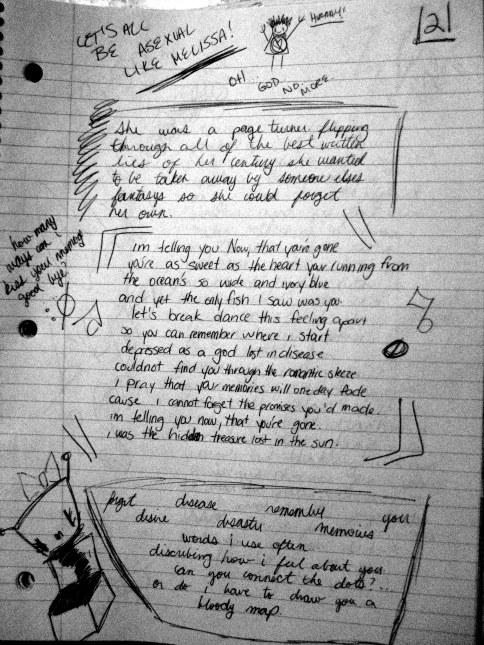 LET'S ALL
BE ASEXUAL
LIKE MELISSA!
HURRAY!
|2|
OH GOD NO MORE
She was a page turner. flipping
through all of the best written
lies of her century she wanted
to be taken away by someone elses
fantasys so she could forget
her own.
how many
ways can i
kiss you morning
good bye?
im telling you Now, that you're gone
you're as sweet as the heart your running from
the ocean's so wide and ivory blue
and yet the only fish I saw was you.
let's break dance this feeling apart
so you can remember where i start
depressed as a god lost in disease
couldnot find you through the romantic sleeze
I pray that your memories will one day fade
cause i cannot forget the promises you'd made.
im telling you now, that you're gone.
i was the hidden treasure lost in the sun.
forget disease remember you
desire disaster memories
words i use often
discribing how i feel about you.
can you connect the dots?...
or do i have to draw you a
bloody map.